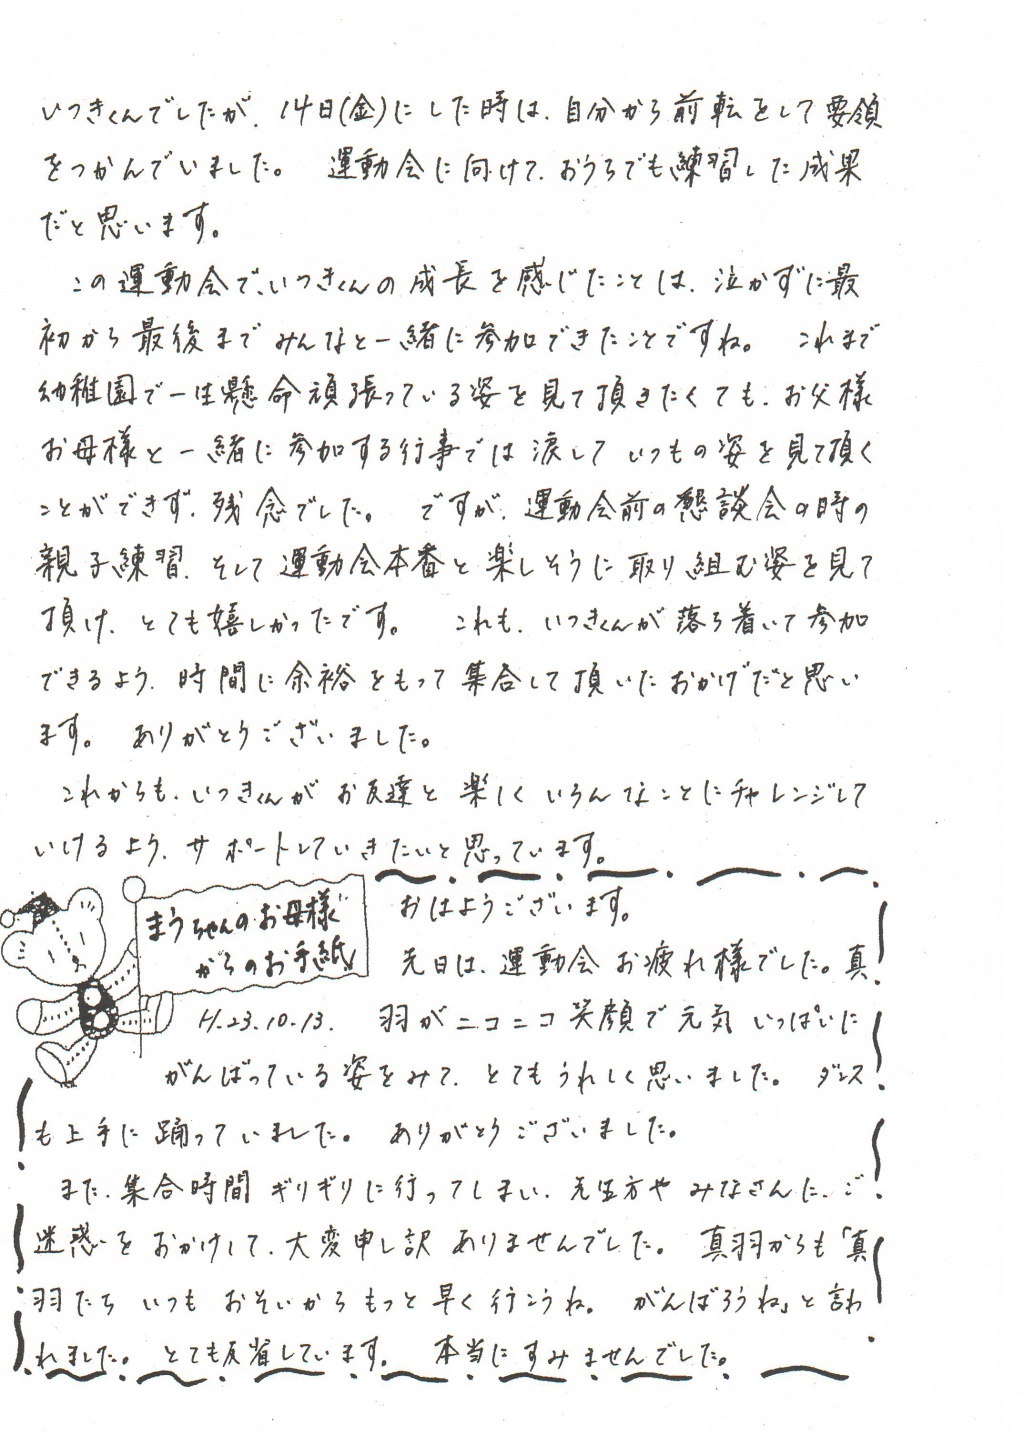 いつきくんでしたが、14日(金)にした時は、自分から前転をして要領
をつかんでいました。　運動会に向けて、おうちでも練習した成果
だと思います。
この運動会で、いつきくんの成長を感じたことは、泣かずに最
初から最後までみんなと一緒に参加できたことですね。　これまで
幼稚園で一生懸命頑張っている姿を見て頂きたくても、お父様
お母様と一緒に参加する行事では涙していつもの姿を見て頂く
ことができず、残念でした。　ですが、運動会前の懇談会の時の
親子練習、そして運動会本番と楽しそうに取り組む姿を見て
頂け、とても嬉しかったです。　これも、いつきくんが落ち着いて参加
できるよう、時間に余裕をもって集合して頂いたおかげだと思い
ます。　ありがとうございました。
これからも、いつきくんがお友達と楽しくいろんなことにチャレンジして
いけるよう、サポートしていきたいと思っています。
まうちゃんのお母様
からのお手紙!
H.23.10.13.
おはようございます。
先日は、運動会お疲れ様でした。真
羽がニコニコ笑顔で元気いっぱいに
がんばっている姿をみて、とてもうれしく思いました。　ダンス
も上手に踊っていました。　ありがとうございました。
また、集合時間ギリギリに行ってしまい、先生方やみなさんに、ご
迷惑をおかけして、大変申し訳ありませんでした。　真羽からも「真
羽たちいつもおそいからもっと早く行こうね。　がんばろうね」と言わ
れました。　とても反省しています。　本当にすみませんでした。